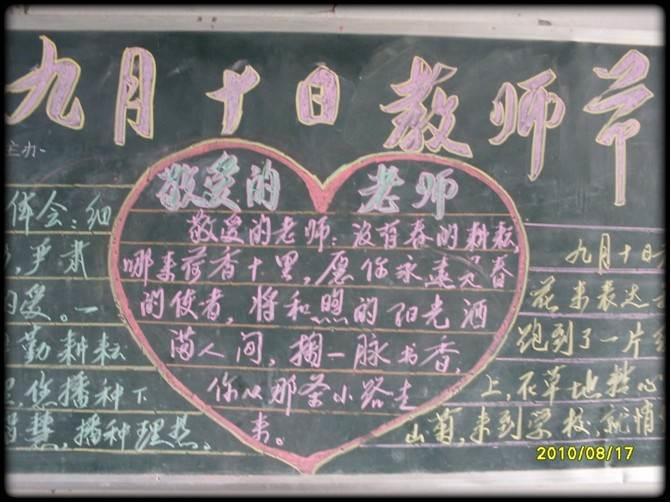 九月十日教师节
主办
敬爱的 老师
敬爱的老师：没有春的耕耘，
哪来荷香十里，愿你永远是春
间使者，将和煦的阳光洒
满人间，掬一脉书香，
你从那茶小路走
来。
体会：细
，严肃
的爱。一
勤耕耘
您播种下
慧，播种理想。
九月十日
花来表达
跑到了一片
上，在草地
山菊，来到学校，就悄
2010/08/17